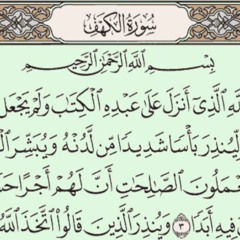 سُورَةُ الكَهْفِ
بِسْمِ اللَّهِ الرَّحْمَٰنِ الرَّحِيمِ
لَّهِ الَّذِي أَنزَلَ عَلَىٰ عَبْدِهِ الْكِتَابَ وَلَمْ يَجْعَل
لِّيُنذِرَ بَأْسًا شَدِيدًا مِّن لَّدُنْهُ وَيُبَشِّرَ الْ
عْمَلُونَ الصَّالِحَاتِ أَنَّ لَهُمْ أَجْرًا حَسَ
فِيهِ أَبَدًا ٣ وَيُنذِرَ الَّذِينَ قَالُوا اتَّخَذَ اللَّهُ